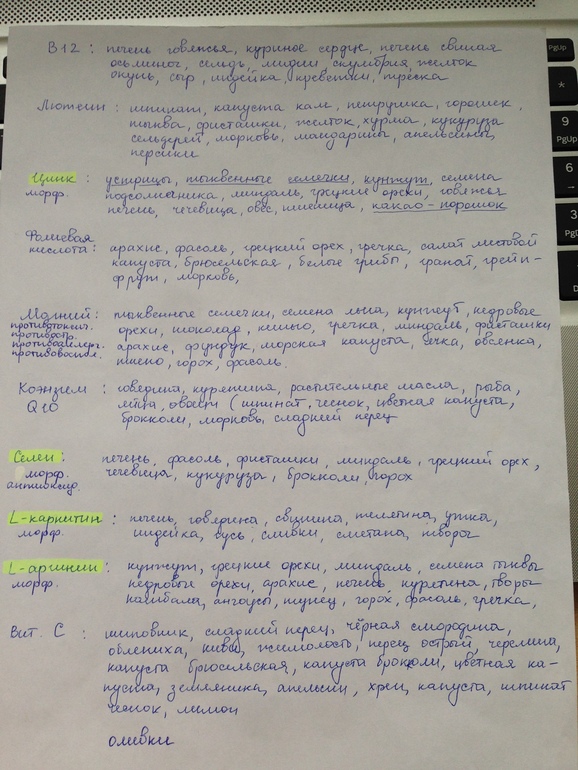 B12 : печень говяжья, куриное сердце, печень свиная
осьминог, сельдь, мидии скумбрия, желток
окунь, сыр, индейка, креветки, треска
Лютеин : шпинат, капуста кал, петрушка, горошек,
тыква, фисташки, желток, хурма, кукуруза
сельдерей, морковь, мандарины, апельсины,
персики
Цинк : устрицы, тыквенные семечки, кунжут, семена
морф. подсолнечника, миндаль, грецкие орехи, говяжья
печень, чечевица, овёс, пшеница, какао-порошок
Фолиевая
кислота : арахис, фасоль, грецкий орех, гречка, салат листовой
капуста, брюсельская, белые грибы, гранат, грейп-
фрут, морковь,
Магний : тыквенные семечки, семена льна, кунжут, кедровые
противотоксич. орехи, шоколад, кешью, гречка, миндаль, фисташки
противостр. арахис, фундук, морская капуста, ячка, овсянка,
противоаллерг. пшено, горох, фасоль.
противовоспал.
Коэнзим : говядина, курятина, растительные масла, рыба,
Q10 яйца, овощи (шпинат, чеснок, цветная капуста,
брокколи, морковь, сладкий перец
Селен : печень, фасоль, фисташки, миндаль, грецкий орех,
морф. чечевица, кукуруза, брокколи, горох
антиоксид.
L-карнитин : печень, говядина, свинина, телятина, утка,
морф. индейка, гусь, сливки, сметана, творог
L-аргинин : кунжут, грецкие орехи, миндаль, семена тыквы
морф. кедровые орехи, арахис, печень курятина, творог
тунец, горох, фасоль, гречка,
Вит. C : шиповник, сладкий перец, чёрная смородина,
облепиха, киви, жимолость, перец острый, черемша,
капуста брюсельская, капуста брокколи, цветная ка-
пуста, земляника, апельсин, хрен, капуста, шпинат
чеснок, лимон
оливки
PgUp
*
9
PgUp
6
→
3